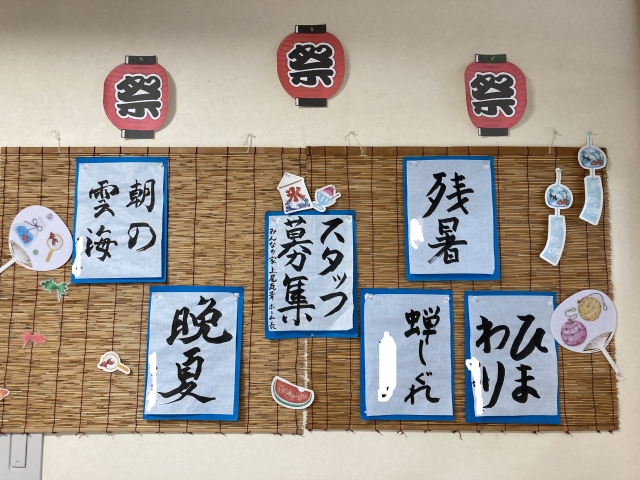 祭
祭
祭
朝の
雲海
氷
スタッフ
募集
みんなの家上尾瓦葺 ホーム長
残
暑
晩
夏
蝉しぐれ
ひま
わり